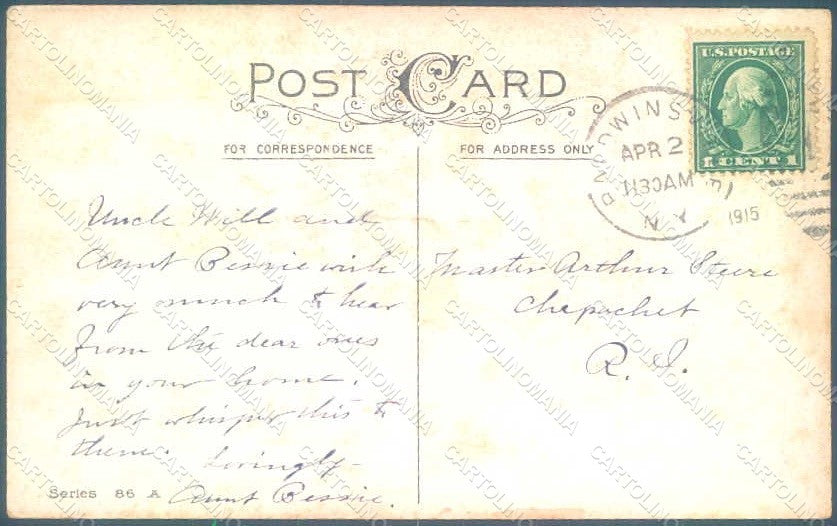 POST CARD
U.S. POSTAGE
1 CENT 1
BALDWINSVILLE
APR 2
1130AM
1915
N.Y.
FOR CORRESPONDENCE
FOR ADDRESS ONLY
Uncle Will and
Aunt Bessie wish
very much to hear
from the dear ones
in your home.
Just whisper this to
them. Lovingly
Aunt Bessie.
Master Arthur Steere
Chepachet
R. I.
Series 86 A
CARTOLINOMANIA